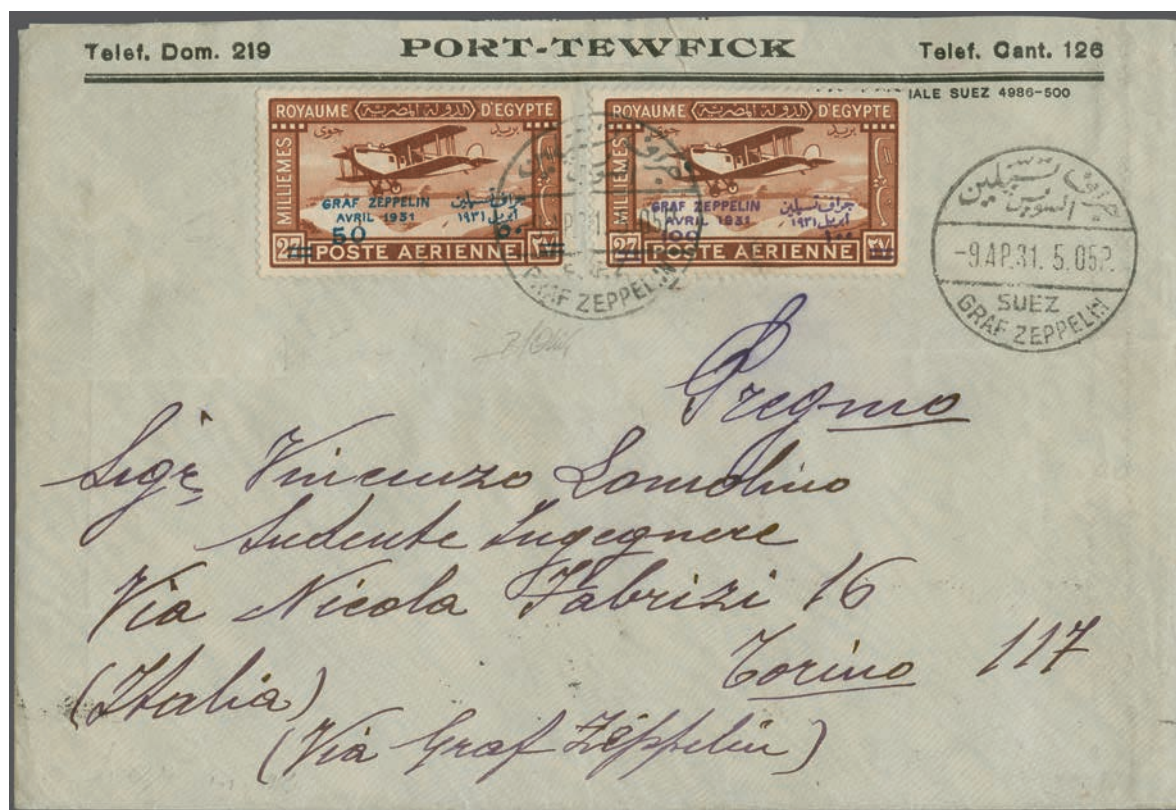 Telef. Dom. 219 PORT-TEWFICK Telef. Cant. 126
IALE SUEZ 4986-500
ROYAUME الدولة المصرية D'EGYPTE
بريد جوى
MILLIEMES
GRAF ZEPPELIN جراف تسبلين
AVRIL 1931 ابريل ١٩٣١
50 ٥٠
27 POSTE AERIENNE ٢٧
ROYAUME الدولة المصرية D'EGYPTE
بريد جوى
MILLIEMES
GRAF ZEPPELIN جراف تسبلين
AVRIL 1931 ابريل ١٩٣١
100 ١٠٠
27 POSTE AERIENNE ٢٧
AP.31. 5.05P.
GRAF ZEPPELIN
جراف تسبلين
السويس
-9.AP.31. 5.05P.
SUEZ
GRAF ZEPPELIN
Pregmo
Sigr. Vincenzo
Studente Ingegnere
Via Nicola Fabrizi 16
Torino 117
(Italia)
(Via Graf Zeppelin)